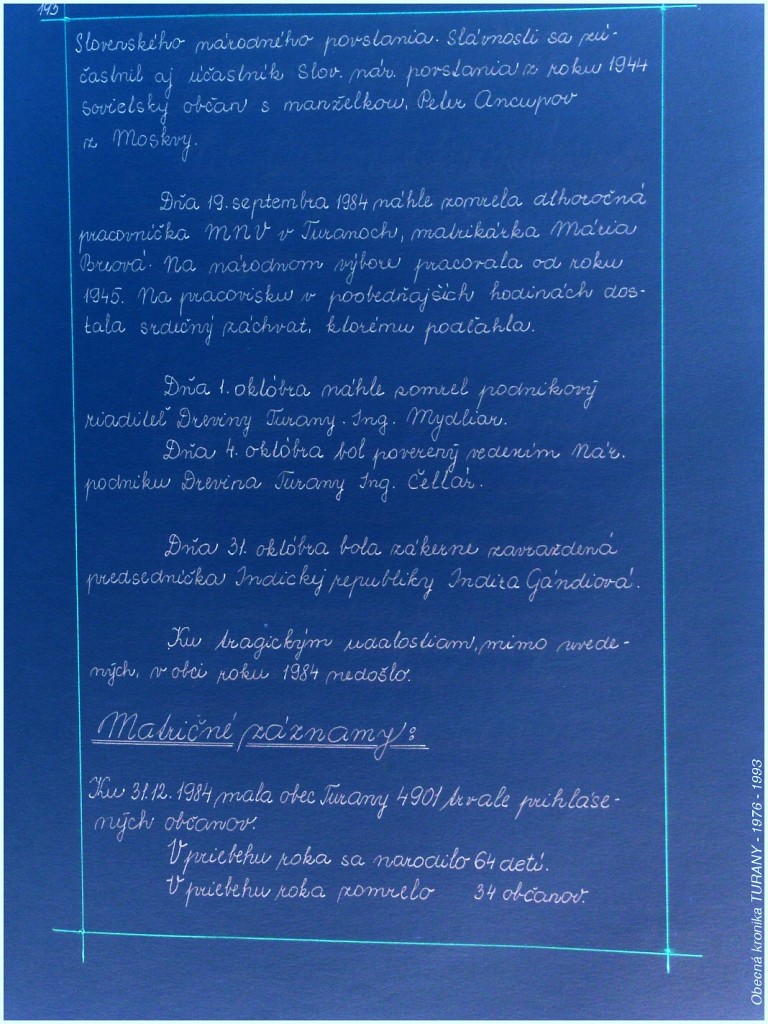 193
Slovenského národného povstania. Slávnosti sa zú-
častnil aj účastník Slov. nár. povstania z roku 1944
sovietsky občan s manželkou, Peter Ancupov
z Moskvy.
Dňa 19. septembra 1984 náhle zomrela dlhoročná
pracovníčka MNV v Turanoch, matrikárka Mária
Na národnom výbore pracovala od roku
1945. Na pracovisku v poobedňajších hodinách dos-
tala srdečný záchvat, ktorému podľahla.
Dňa 1. októbra náhle zomrel podnikový
riaditeľ Dreviny Turany. Ing. Mydliar.
Dňa 4. októbra bol poverený vedením Nár.
podniku Drevina Turany Ing. Čellár.
Dňa 31. októbra bola zákerne zavraždená
predsedníčka Indickej republiky Indira Gándiová.
Ku tragickým udalostiam, mimo uvede-
ných, v obci roku 1984 nedošlo.
Matričné záznamy:
Ku 31.12. 1984 mala obec Turany 4901 trvale prihláse-
ných občanov.
V priebehu roka sa narodilo 64 detí.
V priebehu roka zomrelo 34 občanov.
Obecná kronika TURANY - 1976 - 1993